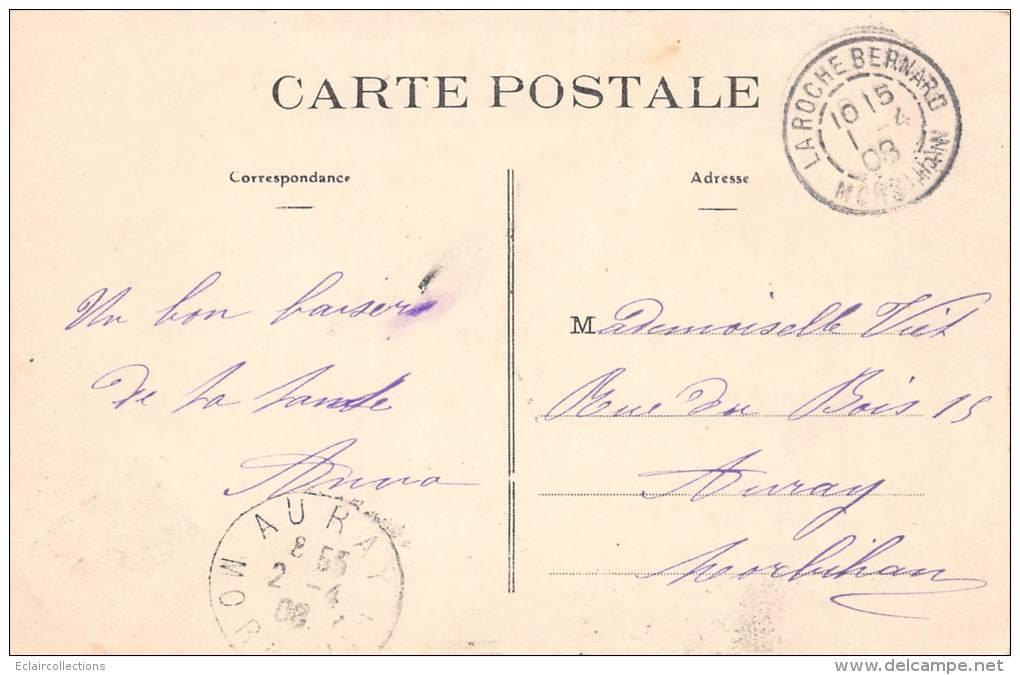 CARTE POSTALE
LA ROCHE BERNARD
10 15
1 -4
08
MORBIHAN
Correspondance
Adresse
Un bon baiser
de ta tante
Anna
Mademoiselle Viet
Rue du Bois 15
Auray
Morbihan
AURAY
8 55
2 -4
08
MOR
Eclaircollections
delcampe.net